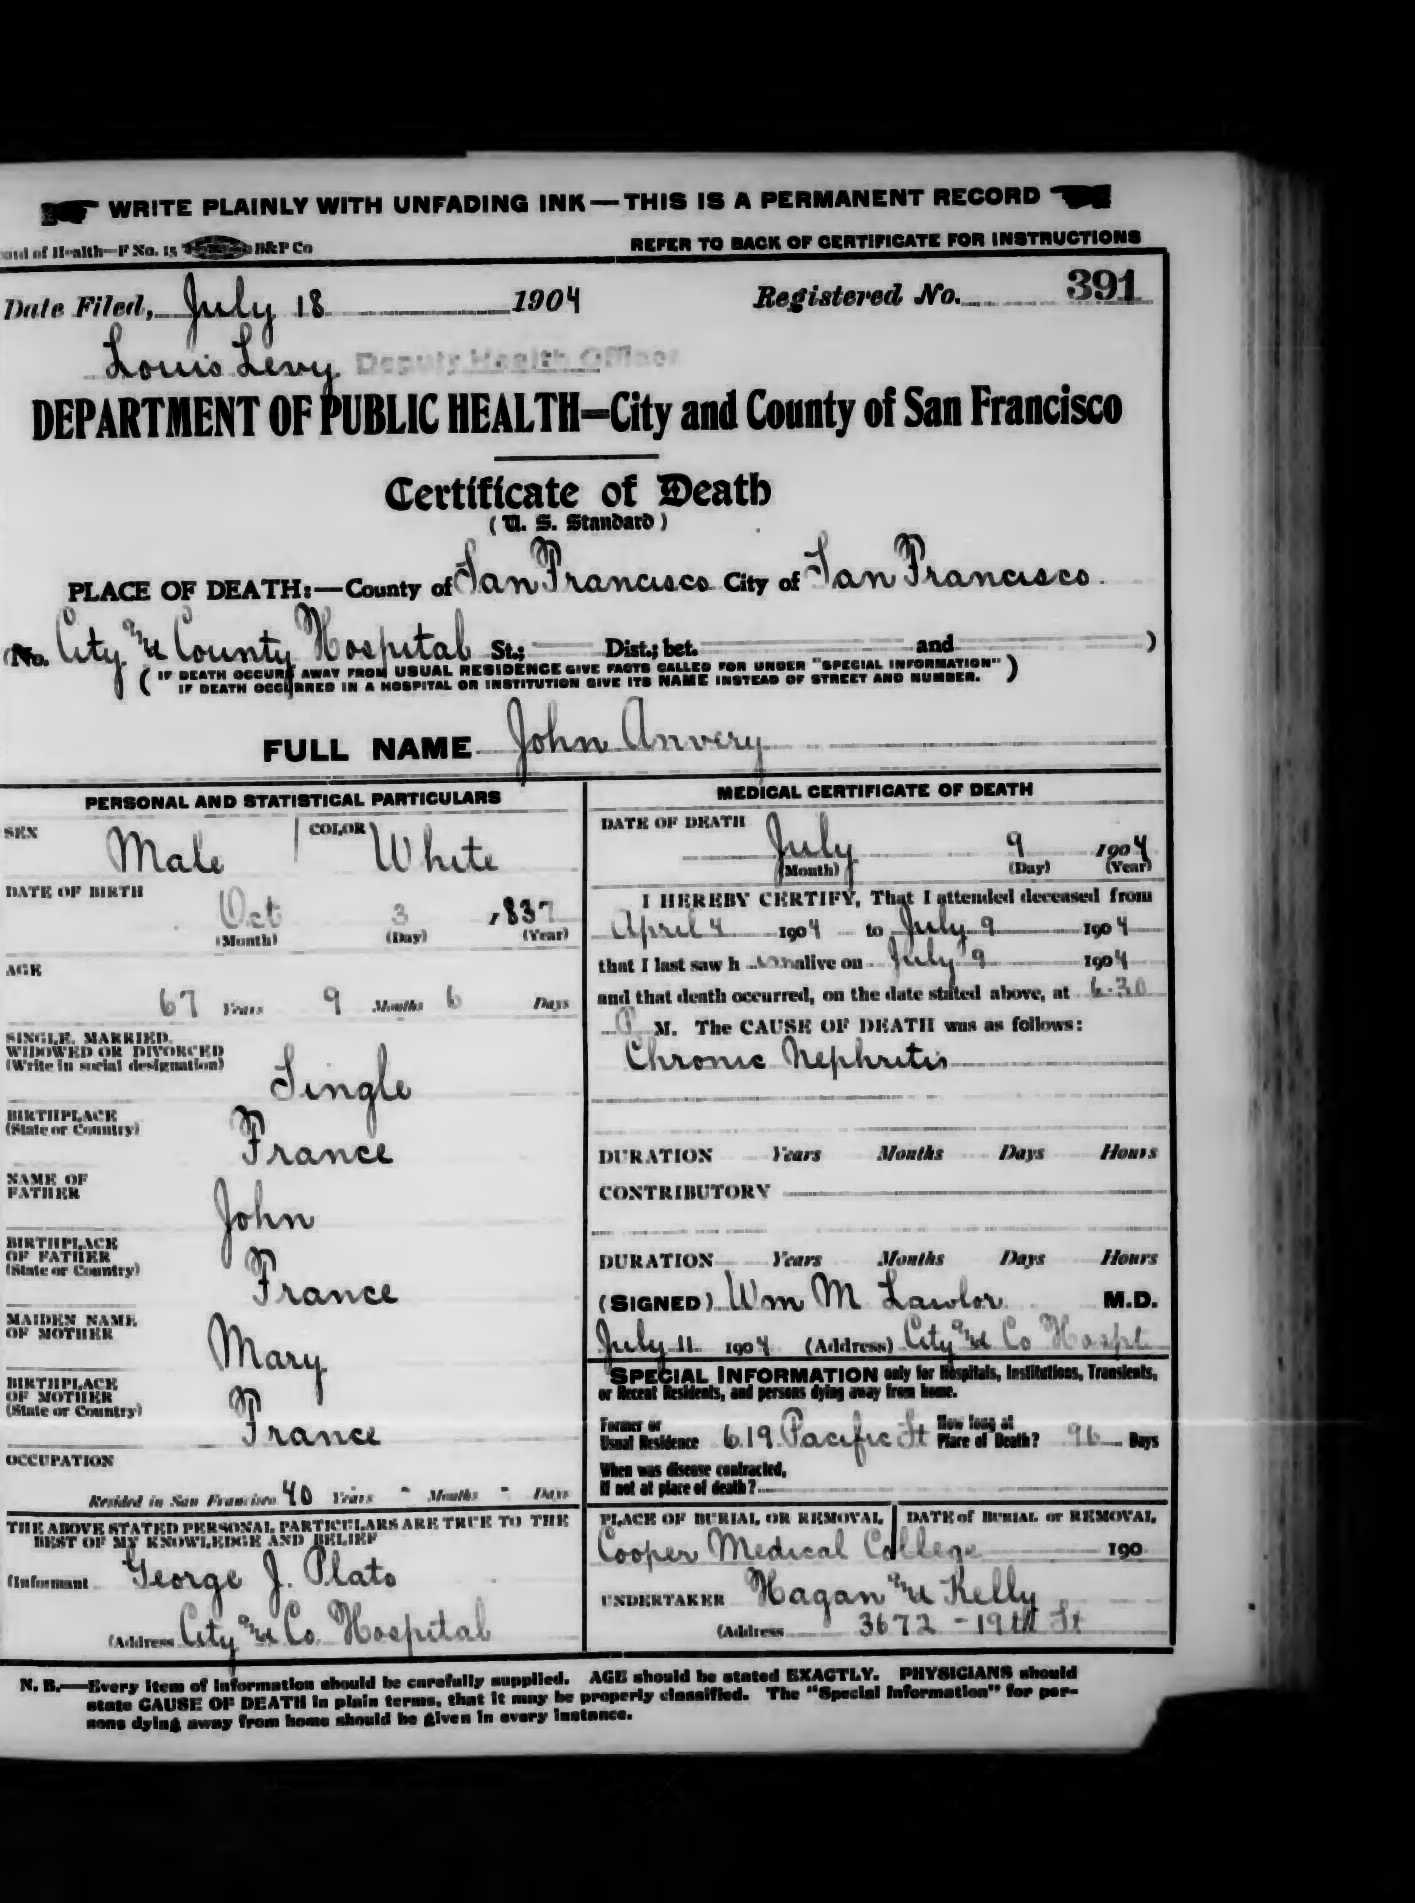 WRITE PLAINLY WITH UNFADING INK—THIS IS A PERMANENT RECORD
of Health—F No. 15 B&P Co
REFER TO BACK OF CERTIFICATE FOR INSTRUCTIONS
Date Filed, July 18 1904
Registered No. 391
Louis Levy Deputy Health Officer
DEPARTMENT OF PUBLIC HEALTH—City and County of San Francisco
Certificate of Death
(U. S. Standard)
PLACE OF DEATH:—County of San Francisco City of San Francisco
(No. City and County Hospital St.; Dist.; bet. and )
(IF DEATH OCCURS AWAY FROM USUAL RESIDENCE GIVE FACTS CALLED FOR UNDER "SPECIAL INFORMATION"
IF DEATH OCCURRED IN A HOSPITAL OR INSTITUTION GIVE ITS NAME INSTEAD OF STREET AND NUMBER.)
FULL NAME John Anvery
PERSONAL AND STATISTICAL PARTICULARS
SEX Male
COLOR White
DATE OF BIRTH
Oct 3 1837
(Month) (Day) (Year)
AGE
67 Years 9 Months 6 Days
SINGLE, MARRIED,
WIDOWED OR DIVORCED
(Write in social designation)
Single
BIRTHPLACE
(State or Country)
France
NAME OF
FATHER
John
BIRTHPLACE
OF FATHER
(State or Country)
France
MAIDEN NAME
OF MOTHER
Mary
BIRTHPLACE
OF MOTHER
(State or Country)
France
OCCUPATION
Resided in San Francisco 40 Years - Months - Days
THE ABOVE STATED PERSONAL PARTICULARS ARE TRUE TO THE
BEST OF MY KNOWLEDGE AND BELIEF
(Informant George J. Plato
(Address City and Co. Hospital
MEDICAL CERTIFICATE OF DEATH
DATE OF DEATH
July 9 1904
(Month) (Day) (Year)
I HEREBY CERTIFY, That I attended deceased from
April 4 1904 to July 9 1904
that I last saw h alive on July 9 1904
and that death occurred, on the date stated above, at 6-30
P M. The CAUSE OF DEATH was as follows:
Chronic Nephritis
DURATION Years Months Days Hours
CONTRIBUTORY
DURATION Years Months Days Hours
(SIGNED) Wm M Lawlor M.D.
July 11 1904 (Address) City and Co Hospt
SPECIAL INFORMATION only for Hospitals, Institutions, Transients,
or Recent Residents, and persons dying away from home.
Former or
Usual Residence 619 Pacific St
How long at
Place of Death? 96 Days
When was disease contracted,
If not at place of death?
PLACE OF BURIAL OR REMOVAL
Cooper Medical College
DATE of BURIAL or REMOVAL
190
UNDERTAKER Hagan and Kelly
(Address 3672 - 19th St
N. B.—Every item of information should be carefully supplied. AGE should be stated EXACTLY. PHYSICIANS should
state CAUSE OF DEATH in plain terms, that it may be properly classified. The "Special Information" for per-
sons dying away from home should be given in every instance.